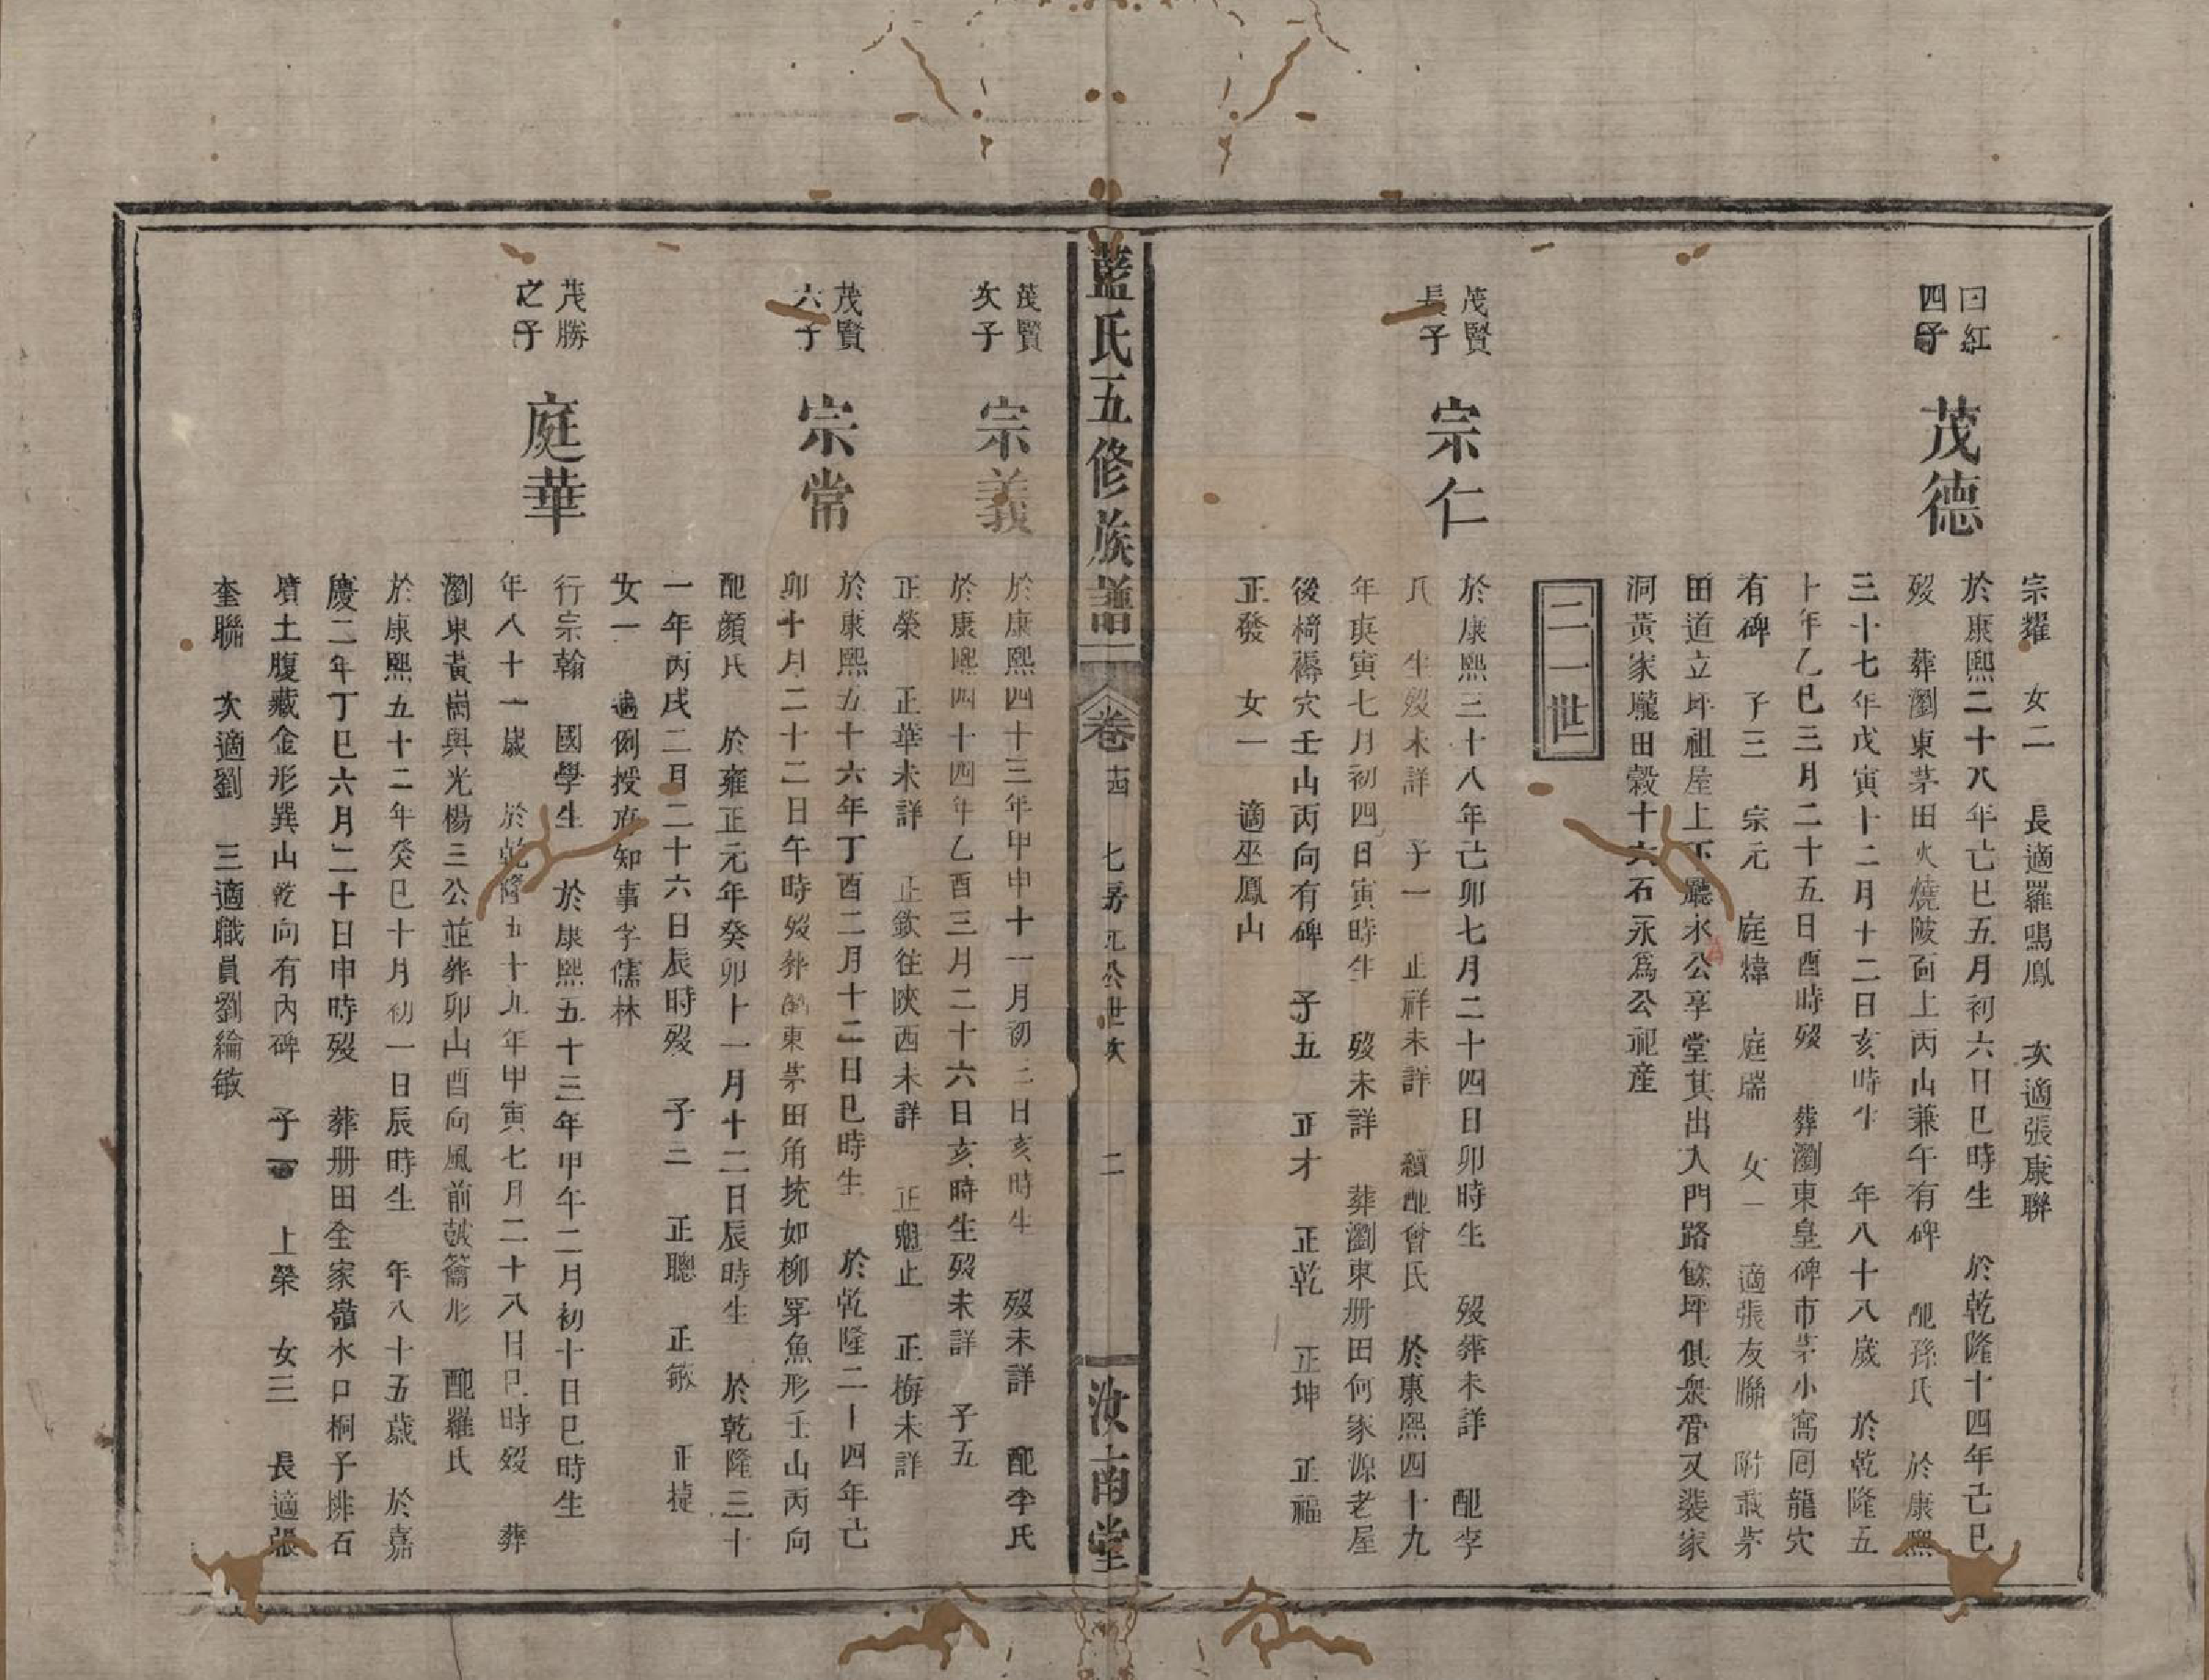 宗耀　女二　長適羅鳴鳳　次適張康聯
曰紅
四子
茂德
於康熙二十八年己巳五月初六日巳時生　於乾隆十四年己巳
歿　葬瀏東茅田火燒陂面上丙山兼午有碑　配孫氏　於康熙
三十七年戊寅十二月十二日亥時生　年八十八歲　於乾隆五
十年乙巳三月二十五日酉時歿　葬瀏東皇碑市茅小窩回龍穴
有碑　子三　宗元　庭煒　庭瑞　女一　適張友聯　附載茅
田道立坪祖屋上下廳永公享堂其出入門路餘坪俱衆管又裝家
洞黃家隴田穀十六石永爲公祀産
二一世
茂賢
長子
宗仁
於康熙三十八年己卯七月二十四日卯時生　歿葬未詳　配李
氏　生歿未詳　子一　正祥未詳　續配曾氏　於康熙四十九
年庚寅七月初四日寅時生　歿未詳　葬瀏東册田何家源老屋
後椅褥穴壬山丙向有碑　子五　正才　正乾　正坤　正福
正發　女一　適巫鳳山
藍氏五修族譜　卷十四　七房元公世次　二　汝南堂
茂賢
次子
宗義
於康熙四十三年甲申十一月初二日亥時生　歿未詳　配李氏
於康熙四十四年乙酉三月二十六日亥時生歿未詳　子五
正榮　正華未詳　正欽往陝西未詳　正魁止　正梅未詳
茂賢
六子
宗常
於康熙五十六年丁酉二月十二日巳時生　於乾隆二十四年己
卯十月二十二日午時歿葬瀏東茅田角坑如柳穿魚形壬山丙向
配顏氏　於雍正元年癸卯十一月十二日辰時生　於乾隆三十
一年丙戌二月二十六日辰時歿　子三　正聰　正敏　正捷
女一
茂勝
之子
庭華
遵例授府知事字儒林
行宗翰　國學生　於康熙五十三年甲午二月初十日巳時生
年八十一歲　於乾隆五十九年甲寅七月二十八日巳時歿　葬
瀏東黃崗與光楊三公並葬卯山酉向風前皷籥形　配羅氏
於康熙五十二年癸巳十月初一日辰時生　年八十五歲　於嘉
慶二年丁巳六月二十日申時歿　葬册田全家嶺水口桐子排石
墳土腹藏金形巽山乾向有內碑　子一　上榮　女三　長適張
奎聯　次適劉　三適職員劉綸敏